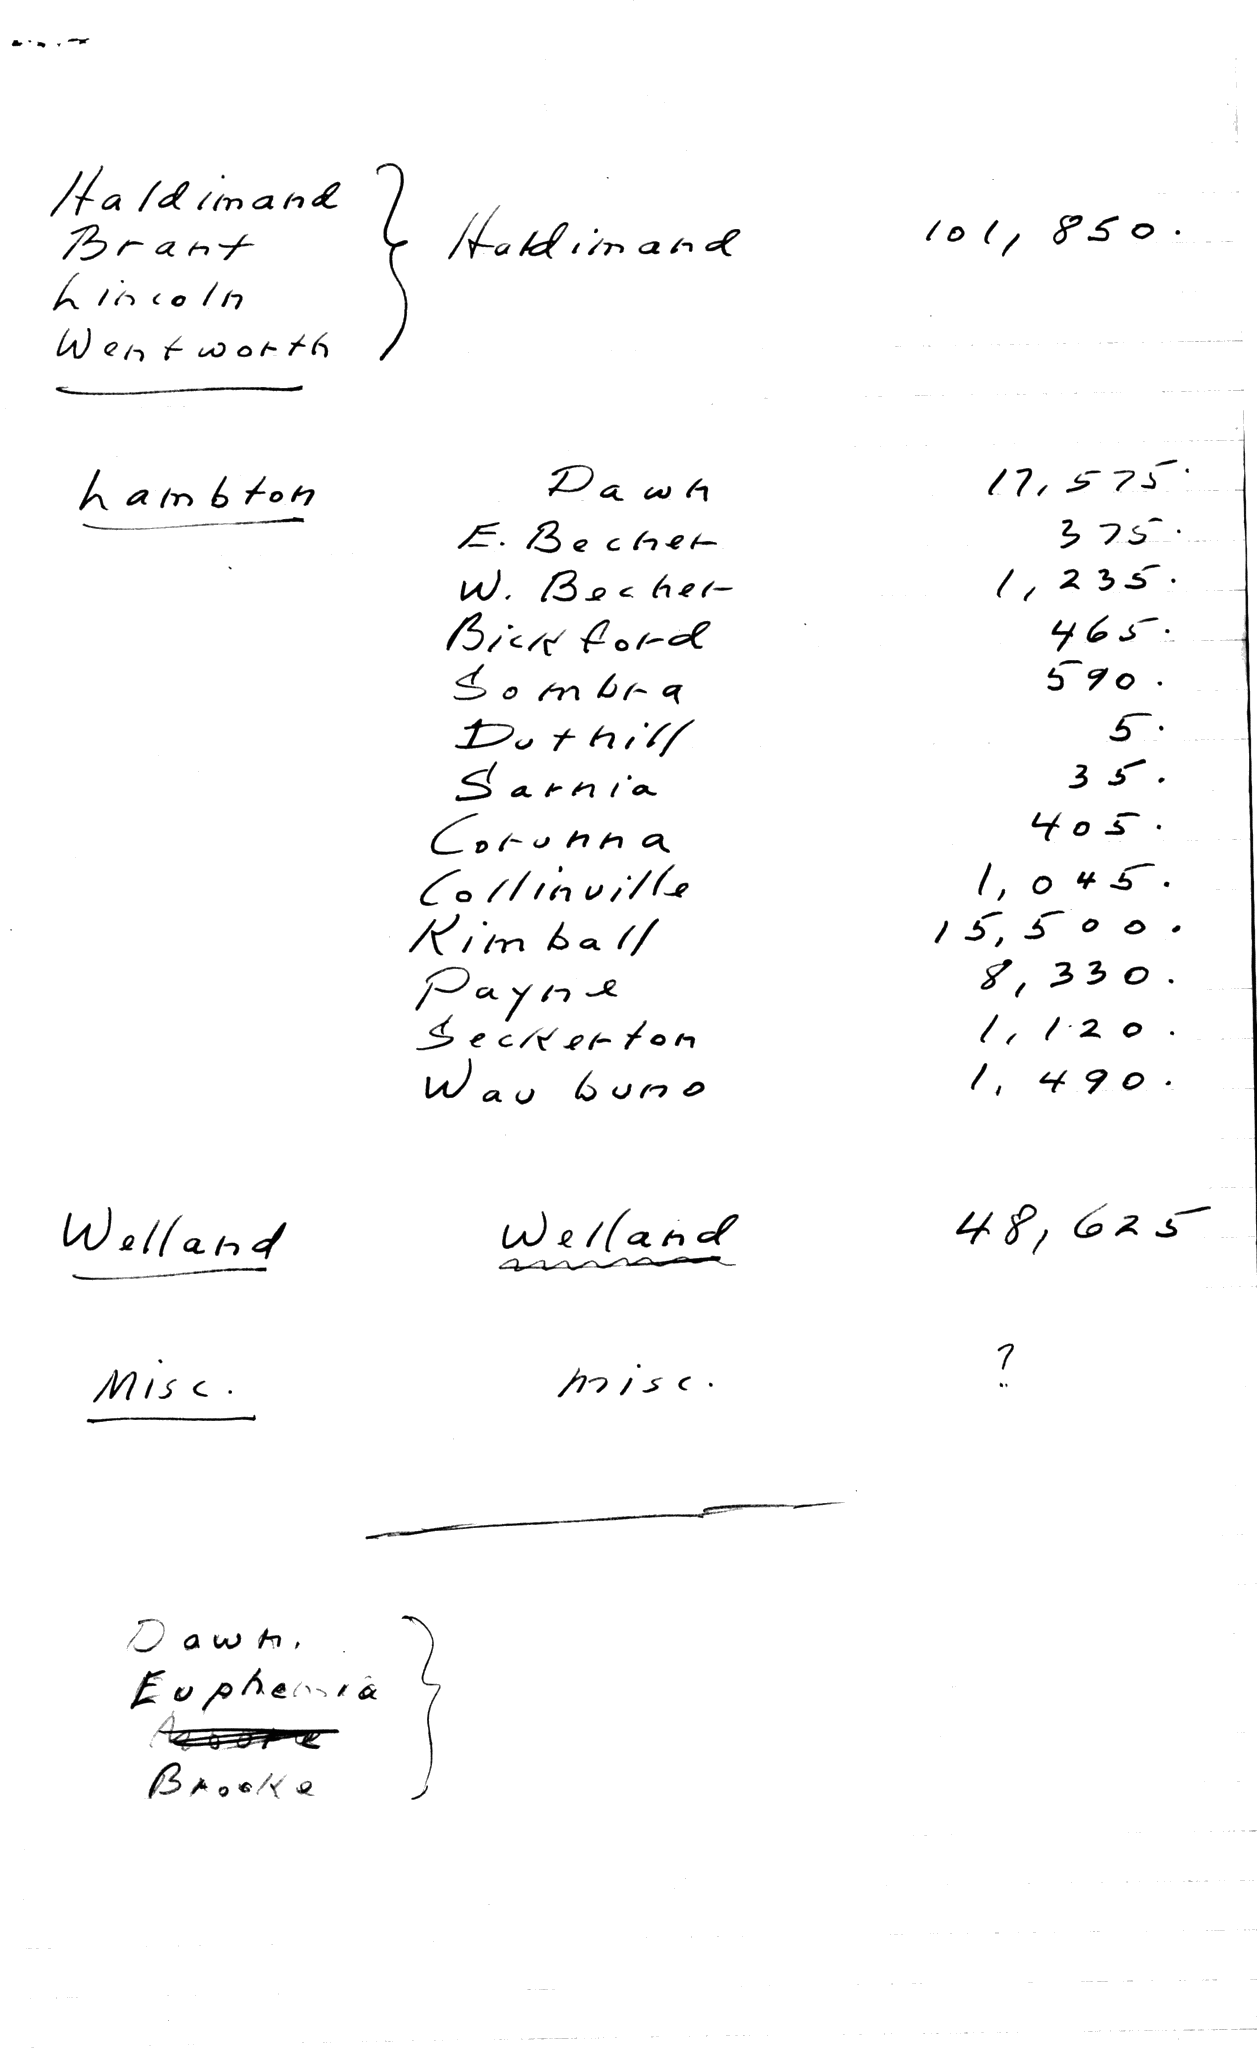 Haldimand
Brant
Lincoln
Wentworth
Haldimand 101,850.
Lambton Dawn 17,575.
E. Becher 375.
W. Becher 1,235.
Bickford 465.
Sombra 590.
Duthill 5.
Sarnia 35.
Corunna 405.
Collinville 1,045.
Kimball 15,500.
Payne 8,330.
Seckerton 1,120.
Waubuno 1,490.
Welland Welland 48,625
Misc. misc. ?
Dawn.
Euphemia
Moore
Brooke